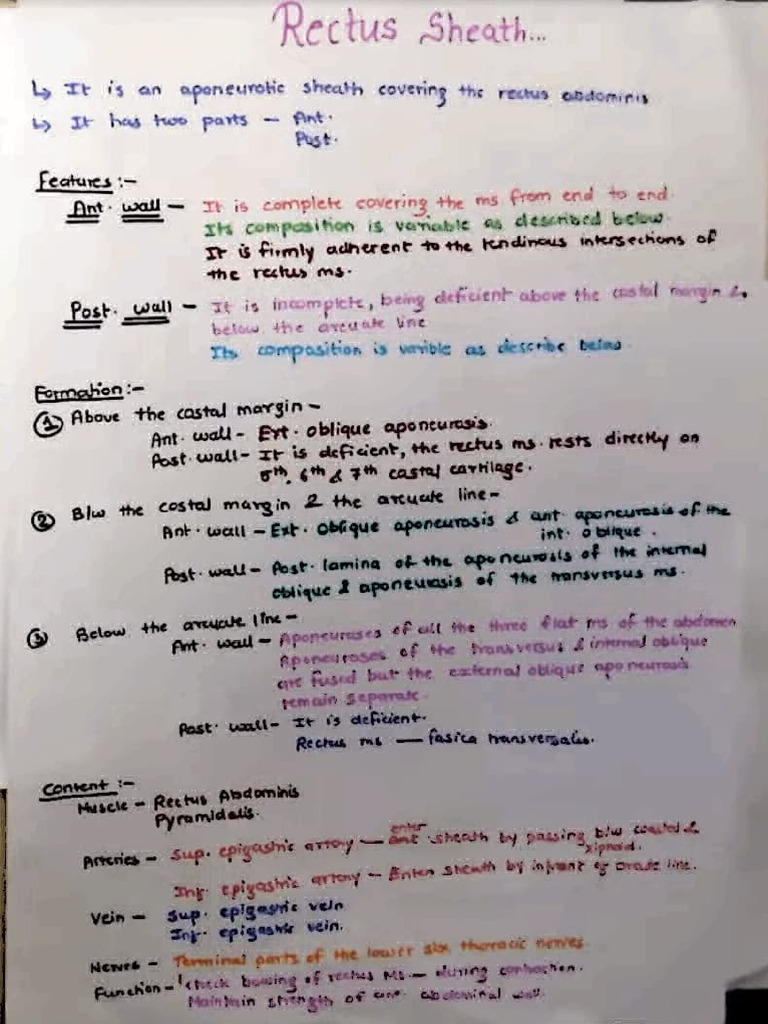 Rectus Sheath...
↳ It is an aponeurotic sheath covering the rectus abdominis
↳ It has two parts - Ant.
Post.
Features :-
Ant. wall - It is complete covering the ms from end to end.
Its composition is variable as described below.
It is firmly adherent to the tendinous intersections of
the rectus ms.
Post. wall - It is incomplete, being deficient above the costal margin &
below the arcuate line
Its composition is varible as describe below.
Formation :-
① Above the costal margin -
Ant. wall - Ext. oblique aponeurosis.
Post. wall - It is deficient, the rectus ms. rests directly on
5th, 6th & 7th costal cartilage.
② B/w the costal margin & the arcuate line -
Ant. wall - Ext. oblique aponeurosis & ant. aponeurosis of the
int. oblique.
Post. wall - Post. lamina of the aponeurosis of the internal
oblique & aponeurosis of the transversus ms.
③ Below the arcuate line -
Ant. wall - Aponeuroses of all the three flat ms of the abdomen
Aponeuroses of the transversus & internal oblique
are fused but the external oblique aponeurosis
remain separate.
Post. wall - It is deficient.
Rectus ms — fasica transversalis.
Content :-
Muscle - Rectus Abdominis
Pyramidalis.
Arteries - Sup. epigastric artory — enter sheath by passing b/w costal &
xiphoid.
Inf. epigastric artory - Enter sheath by infront of line.
Vein - Sup. epigastric vein
Inf. epigastric vein.
Nerves - Terminal parts of the lower six thoracic nerves.
Function - check bowing of rectus Ms — during contraction.
Maintain strength of ant. abdominal wall.